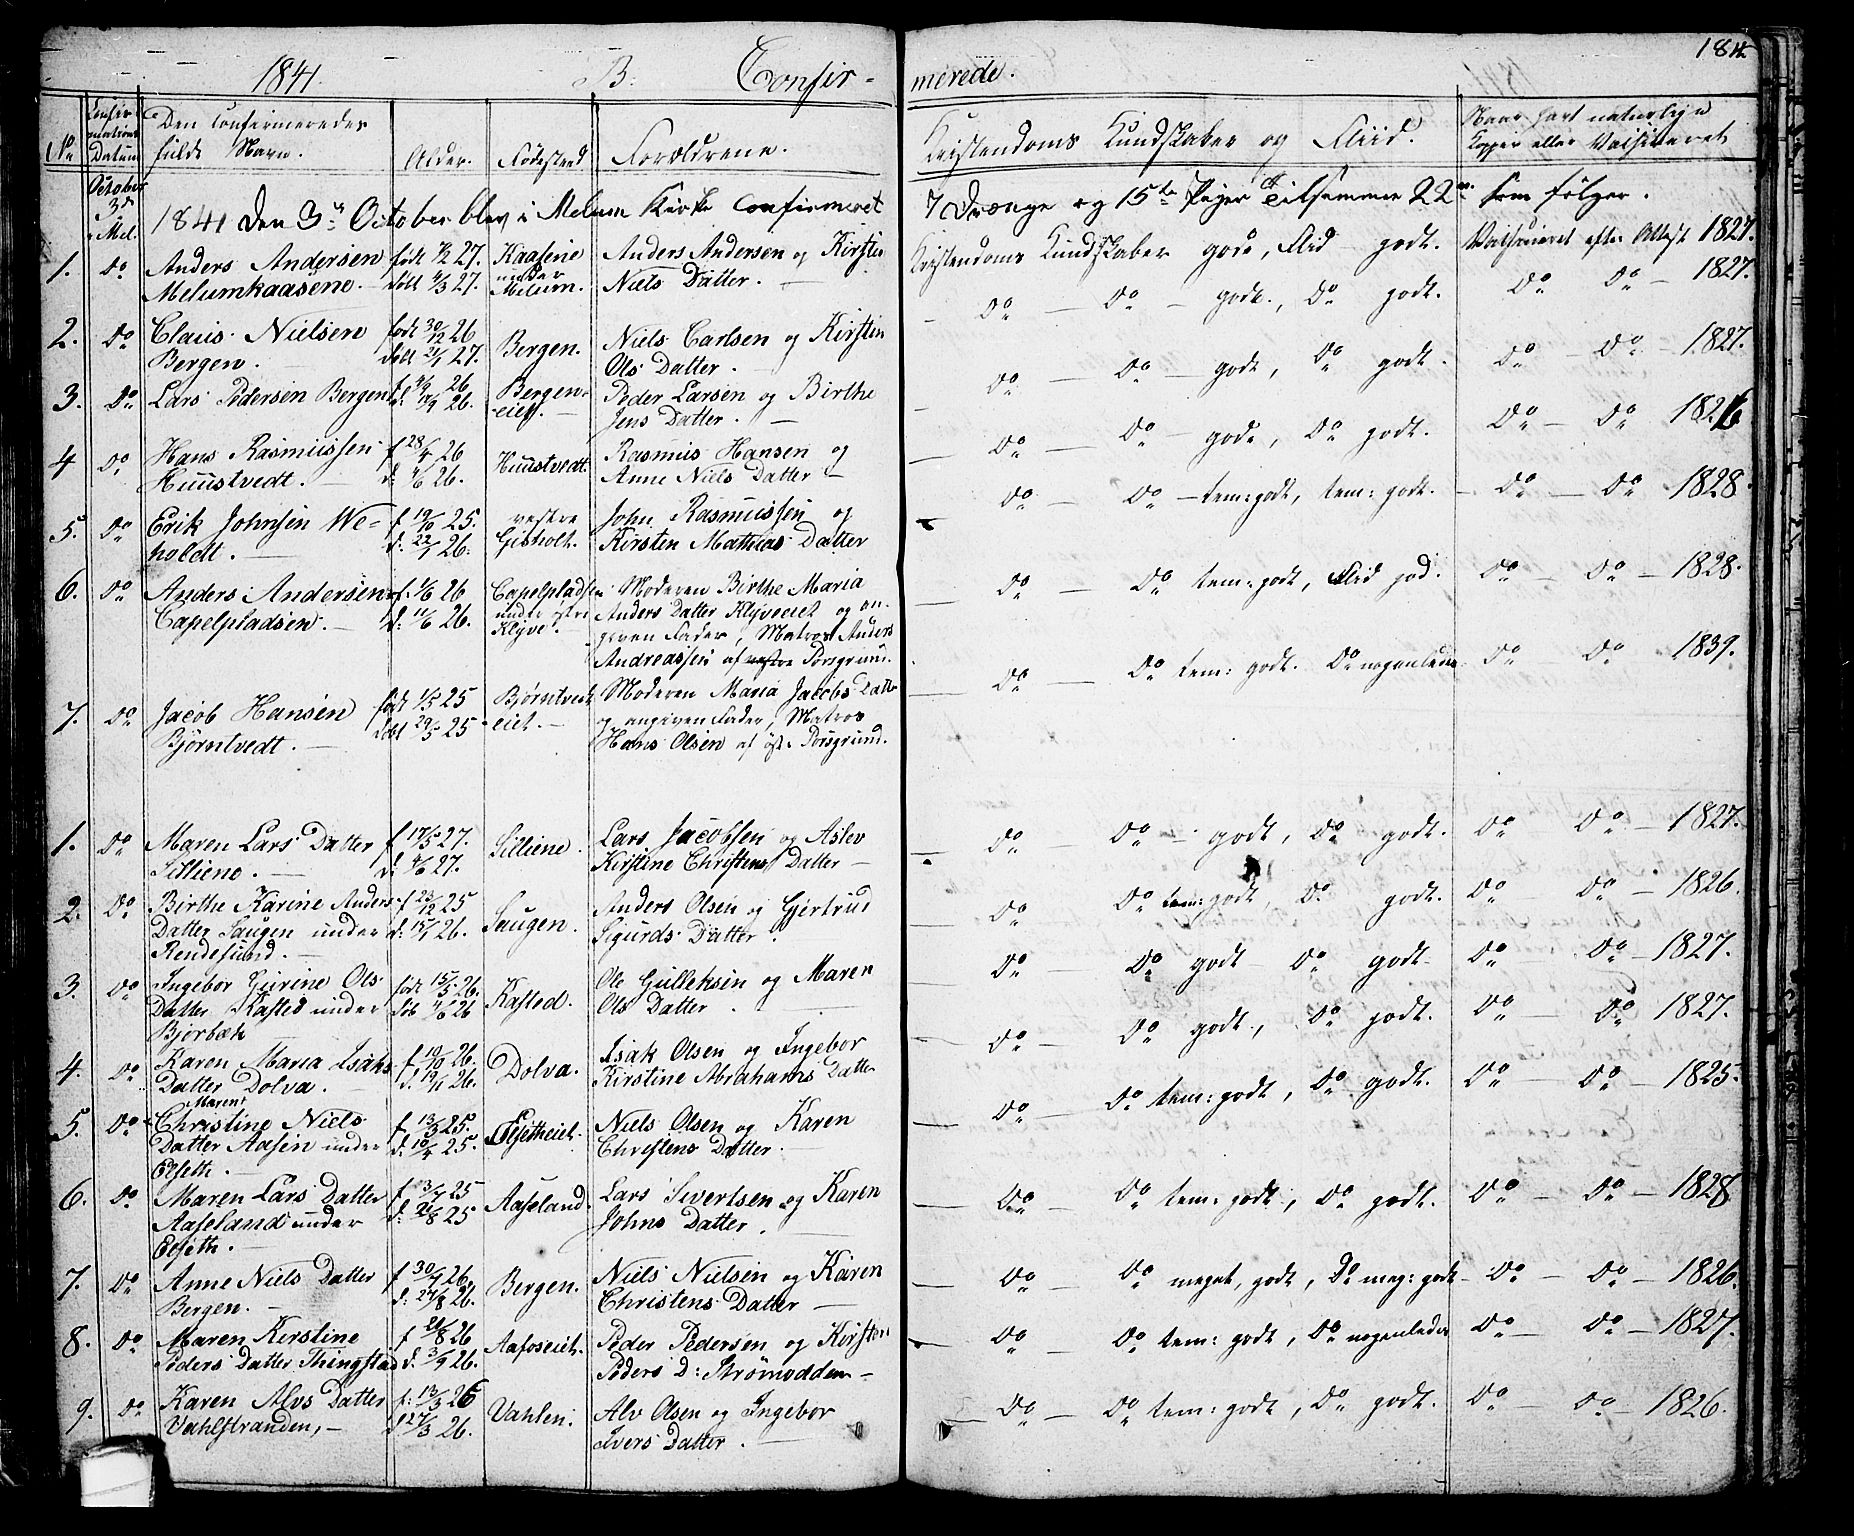 1841. B. Confir-
No Confirmations Datum Den Confirmeredes fulde Navn. Alder. Fødested Forældrene.
October 3de i Mel. 1841 den 3die October blev i Melum Kirke Confirmeret
1. do Anders Andersen født 27. Kaasene Anders Andersen og Kirstin
Melumkaasene. døbt 4/3 27. under Melum. Niels Datter.
2. do Claus Nielsen født 30/12 26 Bergen. Niels Carlsen og Kirstin
Bergen. døbt 21/1 27. Ols Datter.
3. do Lars Pedersen Bergen f. 26 Bergen- Peder Larsen og Birthe
d. 26. eiet. Jens Datter.
4 do Hans Rasmussen f 28/4 26 Huustvedt. Rasmus Hansen og
Huustvedt. d. 26. Anne Niels Datter
5. do Erik Johnsen We- f 19/10 25. vestre John Rasmussen og
holdt. d. 22/1 26. Gisholt. Kirsten Mathias Datter
6. do Anders Andersen f. 1/6 26 Capelpladsen Moderen Birthe Maria
Capelpladsen. d. 11/6 26. under østre Anders Datter Klyveeiet og an-
Klyve. given Fader, Matros Anders
Andreassen af vestre Porsgrund.
7. do Jacob Hansen født 1/5 25 Bjørntvedt Moderen Maria Jacobs Datter
Bjørntvedt. døbt 29/5 25 eiet. og angiven Fader, Matros
Hans Olsen af øst. Porsgrund.
1. do Maren Lars Datter f 17/5 27. Silliene. Lars Jacobsen og Aslev
Silliene. d. 4/6 27. Kirstine Christens Datter
2. do Birthe Karine Anders f 23/12 25 Saugen. Anders Olsen og Gjertrud
Datter Saugen under d. 15/1 26. Sigurds Datter.
Rendesund.
3. do Ingebor Gurine Ols født 15/5 26. Kasted. Ole Gulleksen og Maren
Datter Kasted under døb 4/6 26 Ols Datter.
Bjorbæk
4. do Karen Maria Isaks f 19/10 26. Dolva. Isak Olsen og Ingebor
Datter Dolva. d. 19/11 26. Kirstine Abrahams Datter
Maren
5. do Christine Niels f. 13/3 25. Elsetheiet. Niels Olsen og Karen
Datter Aasen under d. 10/4 25. Christens Datter.
Elseth.
6. do Maren Lars Datter f 13/7 25 Aaseland. Lars Sivertsen og Karen
Aaseland under d. 21/8 25 Johns Datter.
Elseth.
7. do Anne Niels Datter f 30/7 26. Bergen. Niels Nielsen og Karen
Bergen. d. 27/8 26. Christens Datter
8. do Maren Kirstine f 20/8 26 Aafoseiet. Peder Pedersen og Kirsten
Peders Datter Thingstad d. 3/9 26. Peders D: Strømodden
9. do Karen Alvs Datter f. 13/3 26 Vahlen. Alv Olsen og Ingebor
Vahlstranden, d 27/3 26. Ivers Datter.
merede. 184
Kristendoms Kundskaber og Fliid. Naar havt naturlige
Kopper eller Vaksineret
7 Drænge og 15 Piger Tilsammen 22 som følger.
Kristendoms Kundskaber gode, Flid godt. Vaksineret efter Attest 1827.
do do gode, do godt. do do 1827.
do do gode, do godt. do do 1827.
do do gode, do godt. do do 1826
do do tem: godt, tem: godt. do do 1828.
do do tem: godt, Flid god. do do 1828.
do do tem: godt. do nogenlede do do 1839.
do do godt, do godt. do do 1827.
do do tem: godt, do godt. do do 1826.
do do godt do godt do do 1827.
do do godt, do godt. do do 1827.
do do tem: godt, do godt. do do 1825.
do do tem: godt, do godt. do do 1828
do do meget godt, do meg: godt do do 1826.
do do tem: godt, do nogenledes do do 1827.
do do tem: godt, do godt. do do 1826.